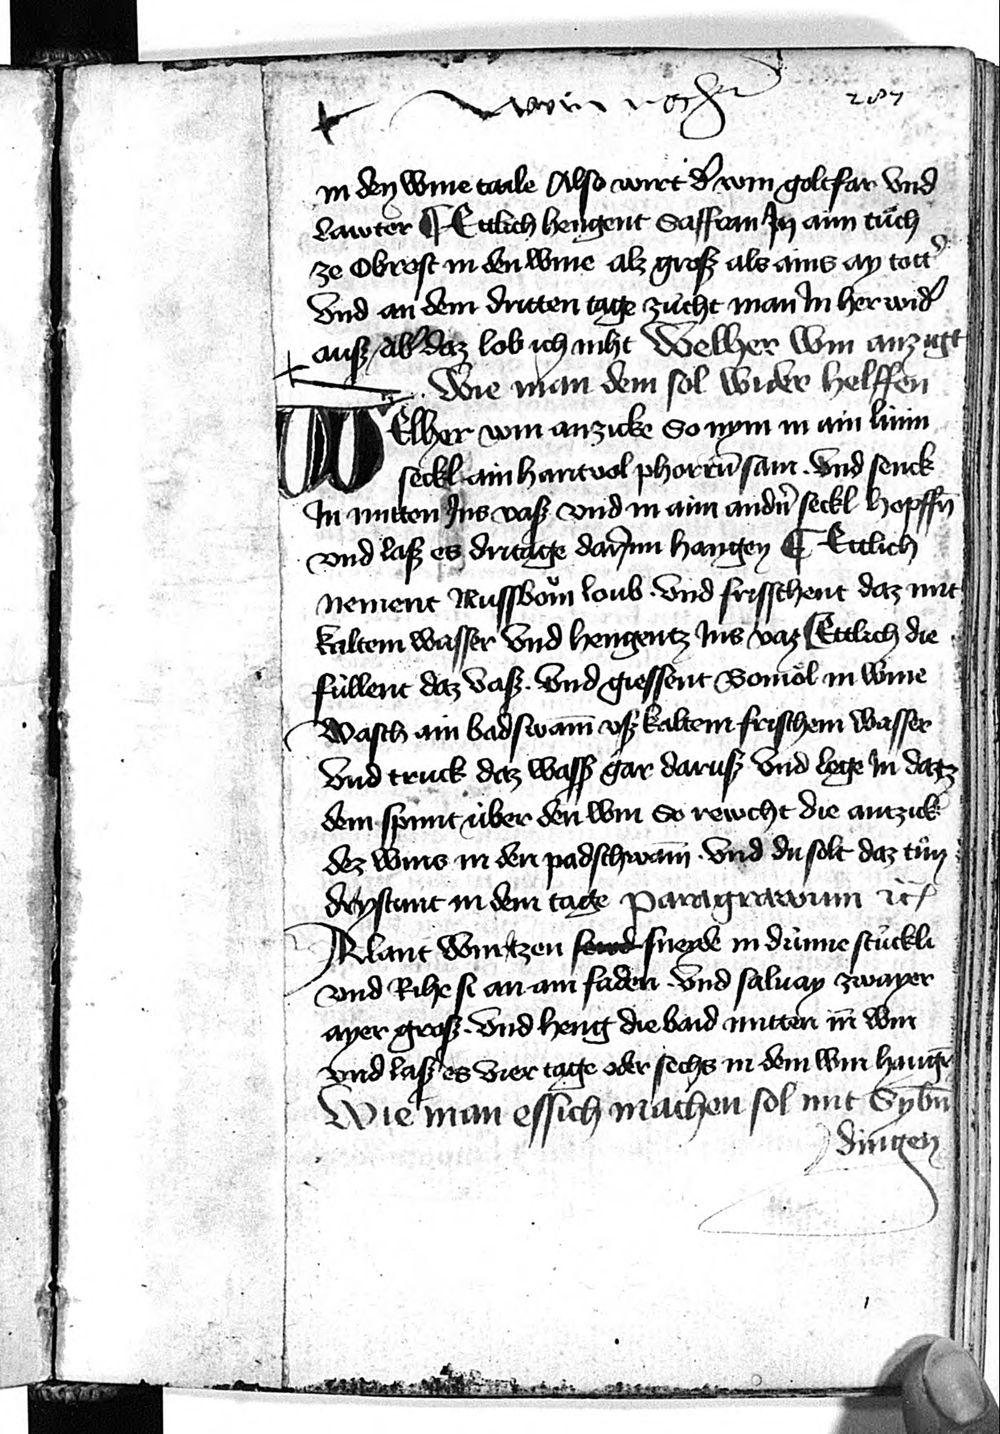 287
in den wine taile Also wirt der win goltfar Vnd
lawter ¶ Ettlich hengent Saffran Jn ain tuͦch
ze Obrest in den wine alz groß als ains ay totter
Vnd an dem dritten tage zuͤcht man Jn her wider
auß / aber daz lob ich niht Welher win anzigt
Wie man dem sol wider helffen
WElher win anzicke So nym in ain linin
seckl ain hantvol phorrn sam · Vnd senck
In mitten Ins vaß vnd in ain andern seckl hopffn̄
vnd laß es dritage darinn hangen ¶ Ettlich
nement Nussboͮm loub · Vnd frisschent daz mit
kaltem wasser Vnd hengentz Ins vaz ¶ Ettlich die
fuͤllent daz Vaß · Vnd giessent Bomoͤl in wine
Wasch ain badswam̄ vß kaltem frischem wasser
Vnd truck daz wasser gar daruß Vnd lege In datz
dem spunt uͤber den win So rewcht die antzick
dez wins in den padschwam̄ · Vnd du solt daz tuͦn
drystunt in dem tage paragrawum
Alant Wurtzen send sneyde in duͤnne stuͤckli
vnd Rihe si an ain faden · Vnd saluay zwayer
ayer groß · Vnd heng die baid mitten in win
vnd laß es Vier tage oder sechs in dem win hangen
Wie man essich machen sol mit Sybn̄
dingen